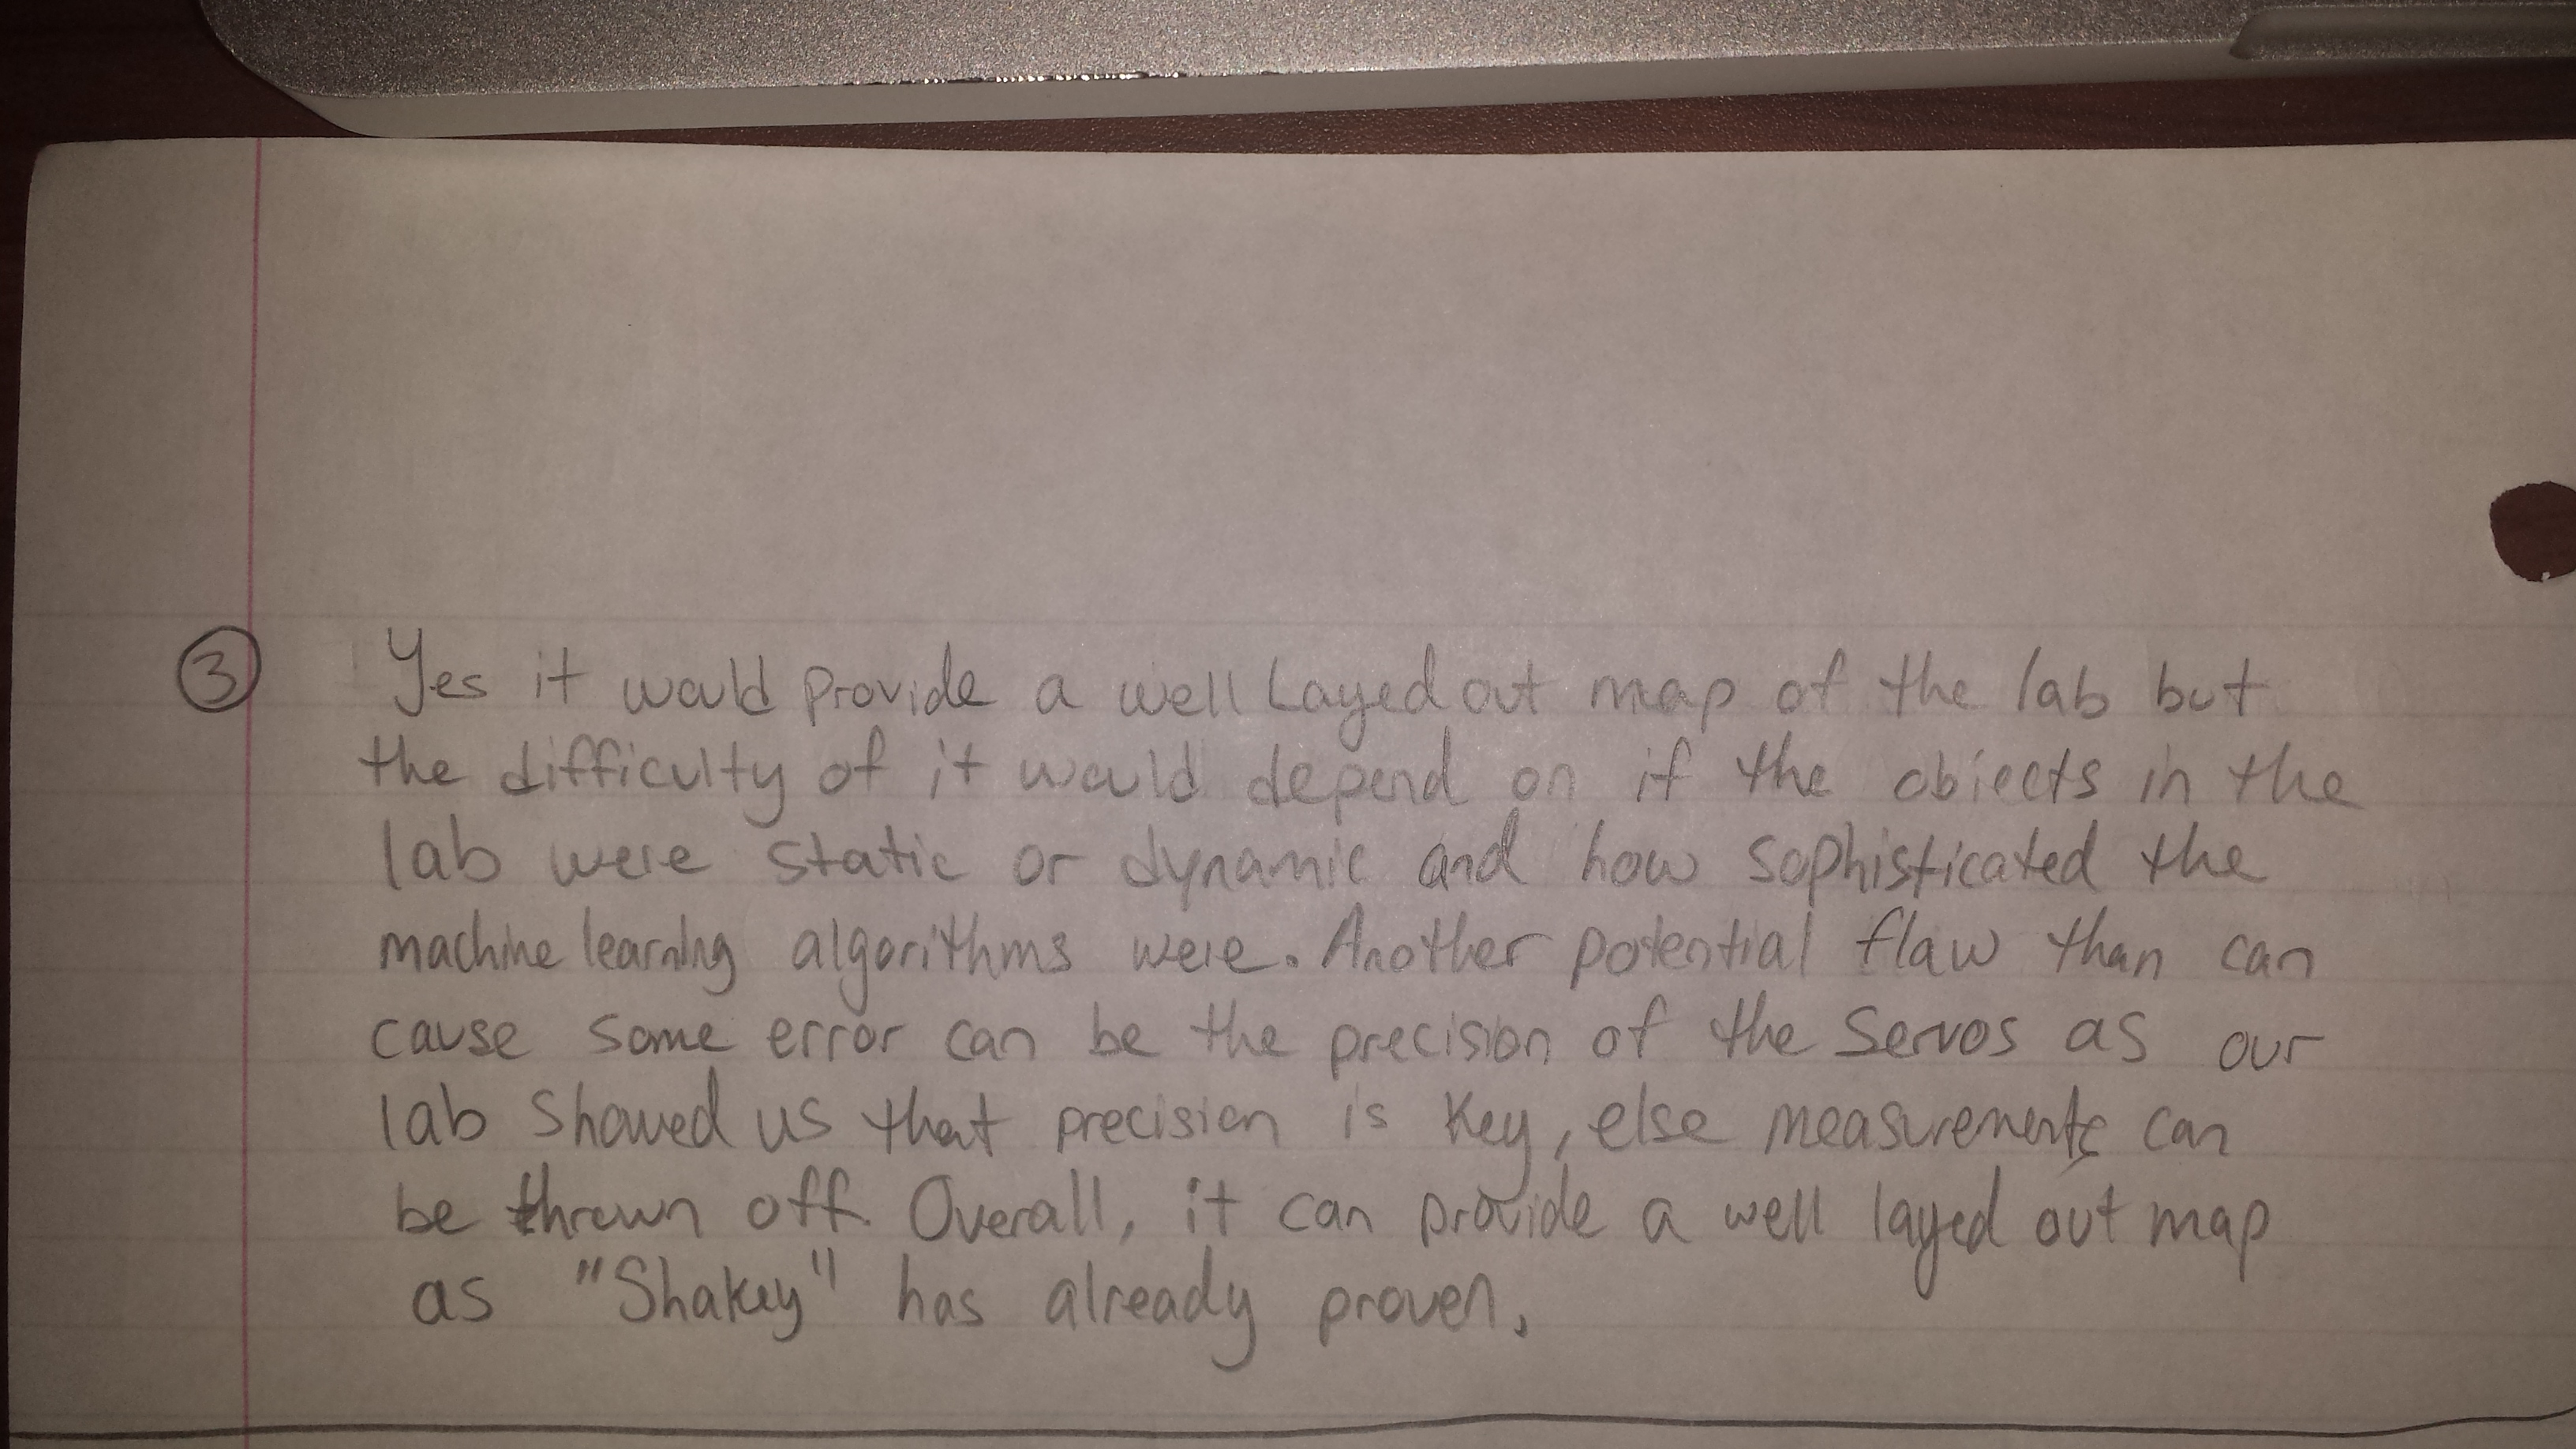 ③ Yes it would provide a well Layed out map of the lab but
the difficulty of it would depend on if the objects in the
lab were static or dynamic and how sophisticated the
machine learning algorithms were. Another potential flaw than can
cause some error can be the precision of the Servos as our
lab showed us that precision is key, else measurements can
be thrown off. Overall, it can provide a well layed out map
as "Shakey" has already proven.